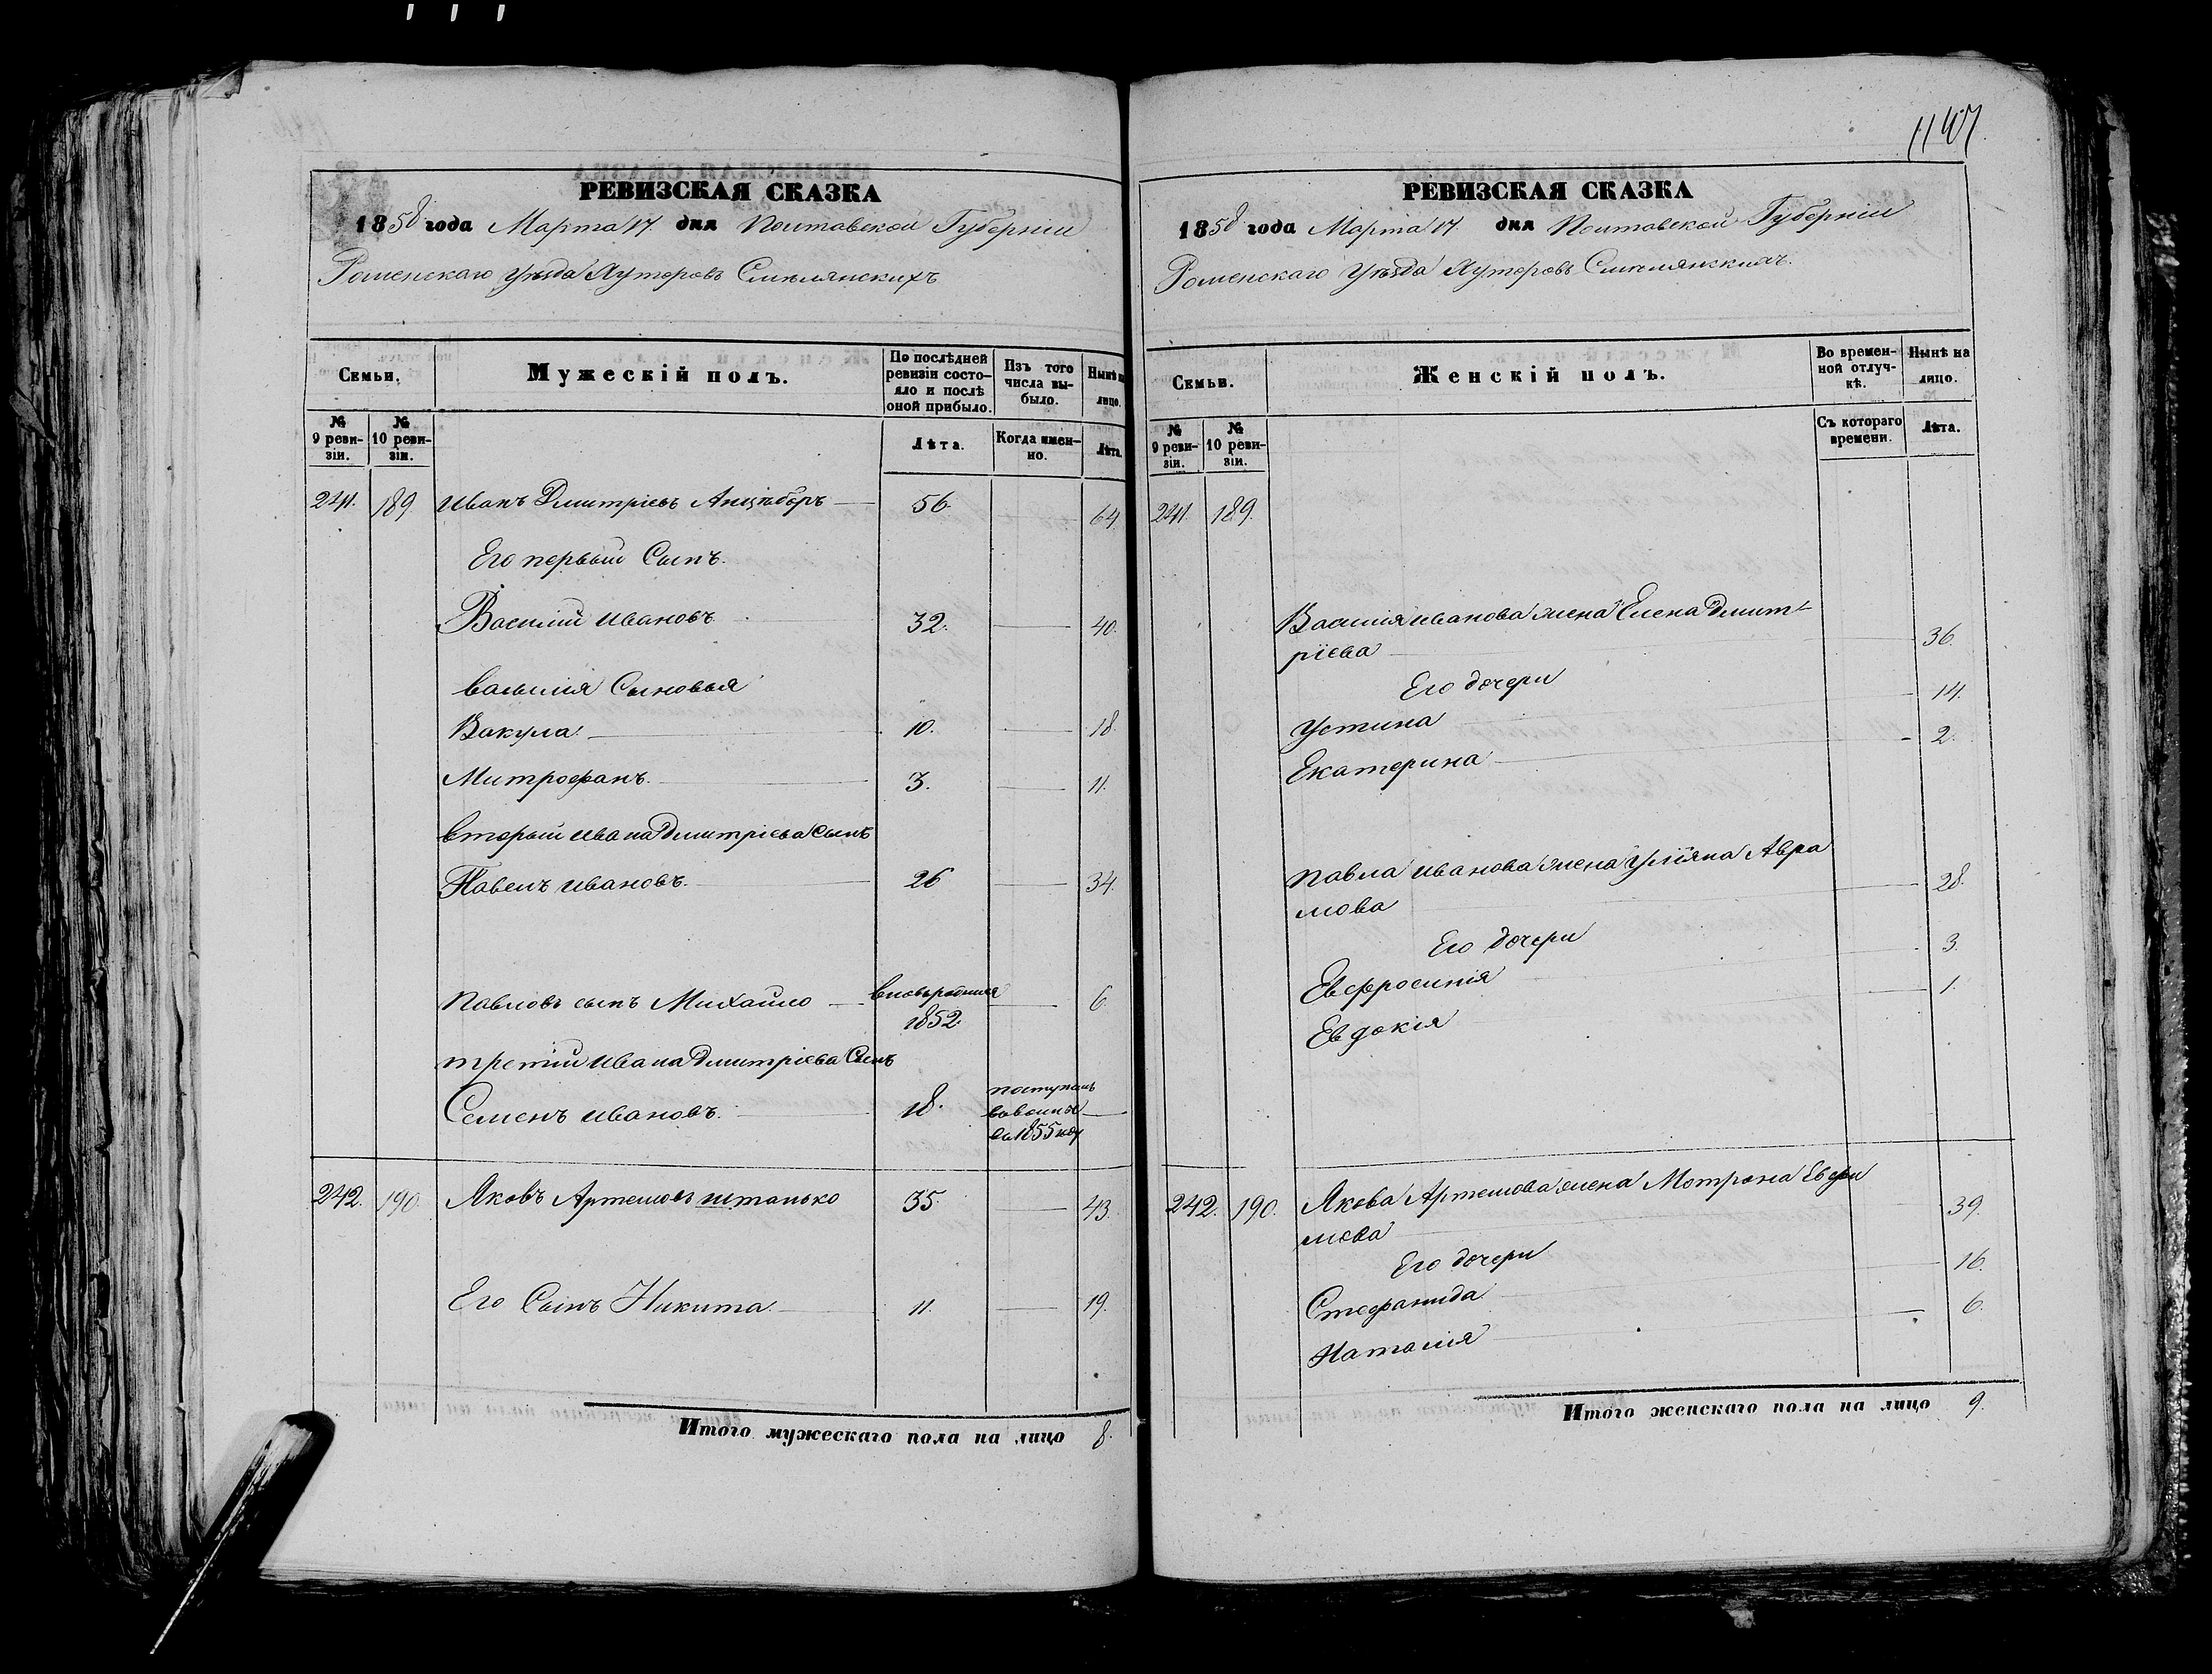 1147
РЕВИЗСКАЯ СКАЗКА
1858 года Марта 17 дня Полтавской Губерніи
Роменскаго Уѣзда Хуторовъ Смѣлянскихъ
Семьи.
Мужескій полъ.
По послѣдней ревизіи состояло и послѣ оной прибыло.
Изъ того числа выбыло.
Нынѣ на лицо.
№ 9 ревизіи.
№ 10 ревизіи.
Лѣта.
Когда именно.
Лѣта.
241. 189 Иванъ Дмитріевъ 56 64
Его первый Сынъ.
Василій Ивановъ 32. 40.
Василія Сыновья
Вакула 10. 18
Митрофанъ. 3. 11.
Вторый Ивана Дмитріева Сынъ
Павелъ Ивановъ. 26 34.
Павловъ сынъ Михайло вновьродился 1852. 6
третій Ивана Дмитріева Сынъ
Семенъ Ивановъ. 18. 1855 году
242. 190. Яковъ Артемовъ штанько 35 43.
Его Сынъ Никита 11. 19.
Итого мужескаго пола на лицо 8.
РЕВИЗСКАЯ СКАЗКА
1858 года Марта 17 дня Полтавской Губерніи
Роменскаго Уѣзда Хуторовъ Смѣлянскихъ.
Семьи.
Женскій полъ.
Во временной отлучкѣ.
Нынѣ на лицо.
№ 9 ревизіи.
№ 10 ревизіи.
Съ котораго времени.
Лѣта.
241. 189.
Василія Иванова жена Елена Дмит-
ріева 36.
Его дочери
Устина 14.
Екатерина 2.
Павла Иванова жена Уліяна Авра
мова 28.
Его дочери
Евфросинія 3.
Евдокія 1.
242. 190. Якова Артемова жена Мотрона Ефи
мова 39.
Его дочери
Стефанида 16.
Наталія 6.
Итого женскаго пола на лицо 9.